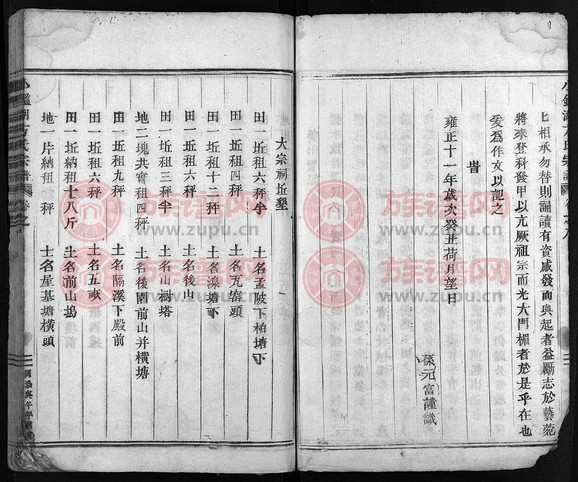 七相承勿替則誦讀有資感發而興起者益勵志於藝苑
將來登科發甲以亢厥祖宗而光大門楣者於是乎在也
爰為作文以記之
旹
雍正十一年歲次癸丑荷月望日
孫元富謹識
大宗祠坵墾
田一坵租六秤半 土名孟陂下柏塘下
田一坵租六秤 土名瓦窑頭
田一坵租十二秤 土名湶塘下
田一坵租六秤 土名後山
田一坵租三秤半 土名山樹塔
地二塊共實租四秤 土名後園前山并橫塘
田一坵租九秤 土名隔溪下殿前
田一坵租六秤 土名五畝
田一坵納租十八斤 土名前山塢
地一片納租一秤 土名屋基塘橫頭
族譜网
www.zupu.cn